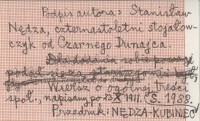 Podpis autora: Stanisław
Nędza, czternastoletni stojałow-
czyk od Czarnego Dunajca.
Wiersz o ogólnej treści
społ., napisany po 13 X 1911. (S. 1988.
Przedruk: NĘDZA-KUBINIEC